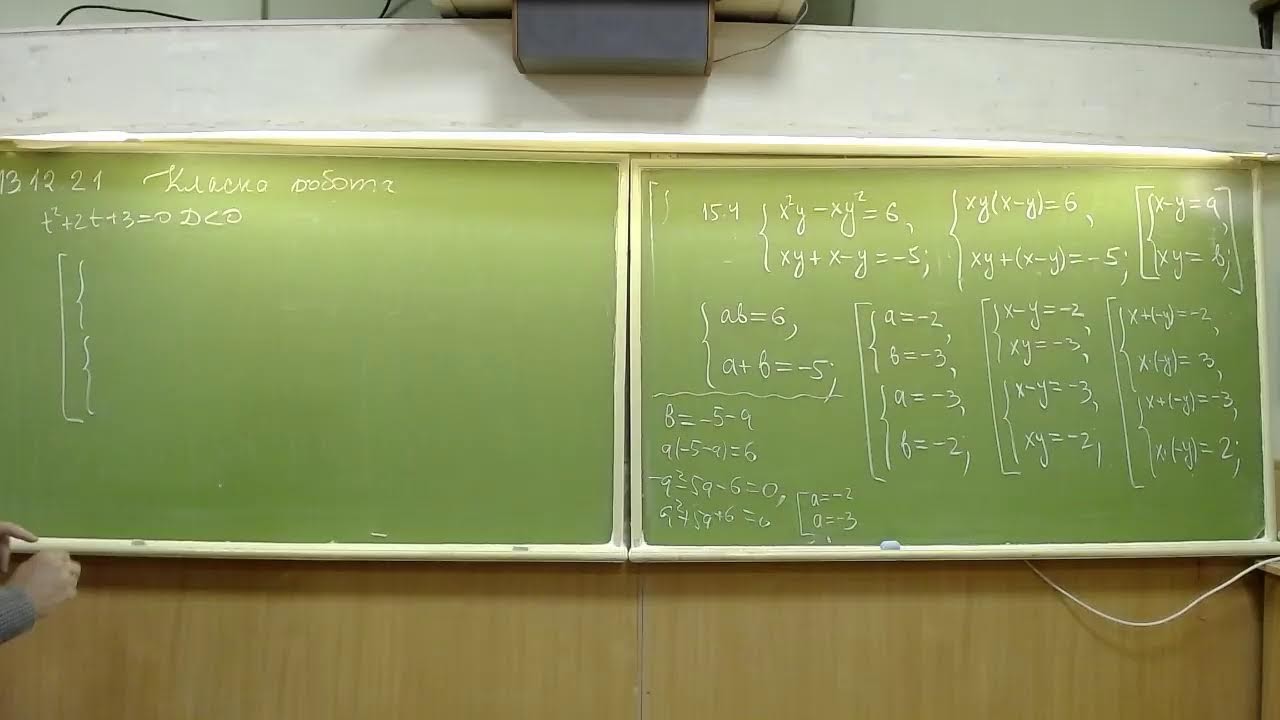 13.12.21 Класна робота
t²+2t+3=0 D<0
15.4 { x²y-xy²=6, xy+x-y=-5; { xy(x-y)=6, xy+(x-y)=-5; [ { x-y=a, xy=b; ]
{ ab=6, a+b=-5;
[ { a=-2, b=-3, { a=-3, b=-2;
[ { x-y=-2, xy=-3, { x-y=-3, xy=-2;
[ { x+(-y)=-2, x·(-y)=3, { x+(-y)=-3, x·(-y)=2;
b=-5-a
a(-5-a)=6
-a²-5a-6=0,
a²+5a+6=0 [ a=-2 a=-3